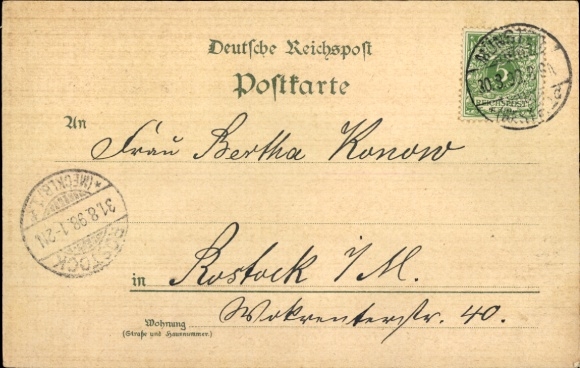 Deutsche Reichspost
Postkarte
REICHSPOST
An
Frau Bertha Konow
ROSTOCK
(MECKLB)
31.8.98.1-2N.
in Rostock i/M.
Wokrenterstr. 40.
Wohnung
(Straße und Hausnummer)